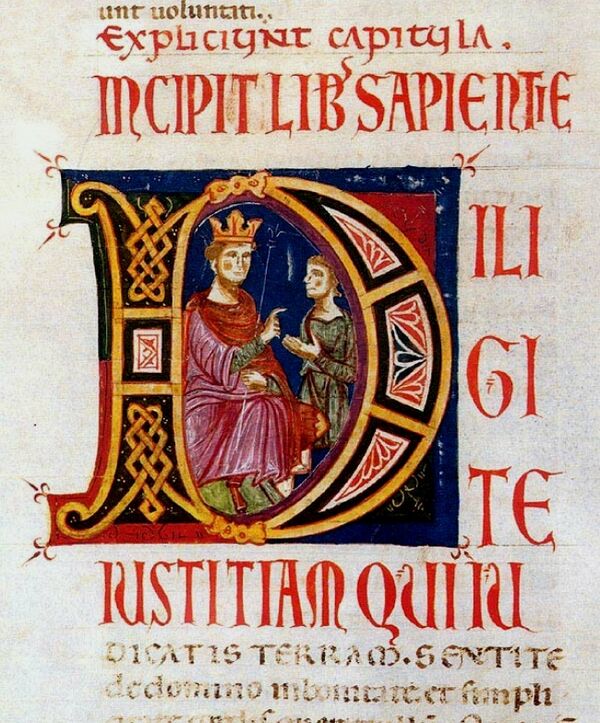 unt uoluntati..
Expliciunt capitula.
INCIPIT LIB' SAPIENTIE
D ILI
GI
TE
IUSTITIAM QUI IU
DICATIS TERRAM. SENTITE
de domino in bonitate et simpli